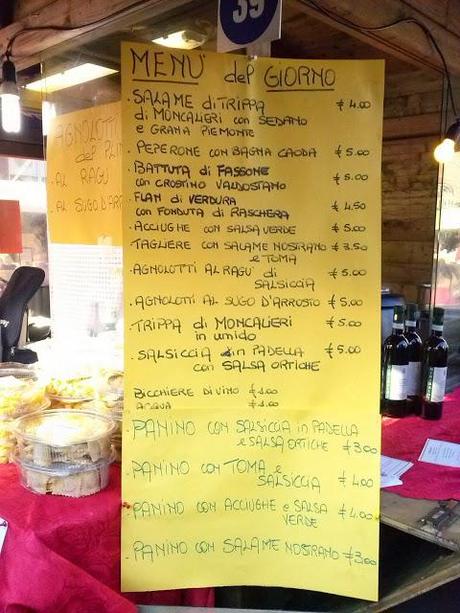 39
MENU' del GIORNO
. SALAME di TRIPPA € 4.00
di MONCALIERI con SEDANO
e GRANA PIEMONTE
. PEPERONE CON BAGNA CAODA € 5.00
. BATTUTA di FASSONE € 5.00
con CROSTINO VALDOSTANO
. FLAN di VERDURA € 4.50
con FONDUTA di RASCHERA
. ACCIUGHE CON SALSA VERDE € 5.00
. TAGLIERE CON SALAME NOSTRANO € 3.50
e TOMA
. AGNOLOTTI AL RAGU' di € 5.00
SALSICCIA
. AGNOLOTTI AL SUGO D'ARROSTO € 5.00
. TRIPPA di MONCALIERI € 5.00
in umido
. SALSICCIA in PADELLA € 5.00
con SALSA ORTICHE
. BICCHIERE DI VINO € 1.00
. ACQUA € 1.00
. PANINO CON SALSICCIA in PADELLA
e SALSA ORTICHE € 3.00
. PANINO CON TOMA e € 4.00
SALSICCIA
. PANINO CON ACCIUGHE e SALSA € 4.00
VERDE
. PANINO CON SALAME NOSTRANO € 3.00
AGNOLOTTI
del PLIN
. AL RAGU
. AL SUGO D'ARR